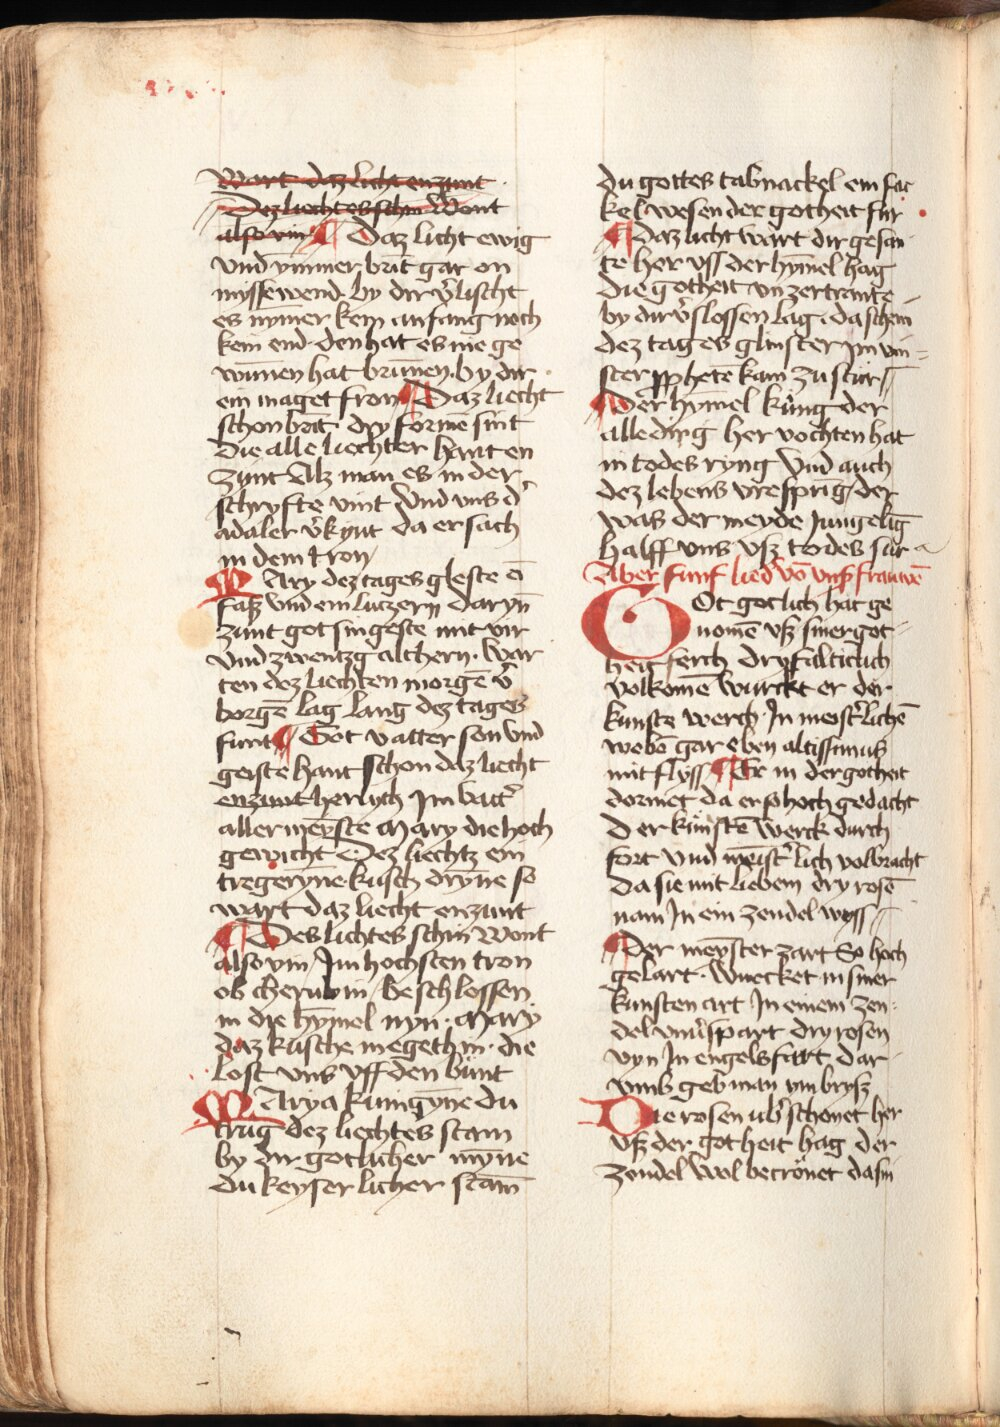 wart daz licht enzunt
Dez liechtes schin wont
also vin ¶ Daz licht ewig
vnd ymmer brīt gar on
myssewend. by dir v̄lischt
es nȳmer kein anfang noch
kein end. den hat es nie ge
wūnen hat brūnen. by dir
ein maget fron ¶ Daz liecht
schon brīt dry forme sint
die alle liechter hant en
zunt Alz man es in der
schryfte vint Vnd vns d'
adaler v̄kynt da er sach
in dem tron
MAry dez tages gleste ei
fasz vnd ein luczern daryn̄
zunt got sin geste mit vir
vnd zwentzg althern. war
ten dez liechten morgē v̄
borgē lag lang dez tages
funt ¶ Got vatter son vnd
geiste hant schon daz liecht
enzunt herlych Im vatt'
aller meyste Mary die hoch
gewicht Dez liechtz ein
tregerȳne. kusch drȳne so
wart daz liecht enzunt
¶ Des lichtes schin wont
also vin Im hochsten tron
ob cherubin beschlossen
in die hȳmel nyn. Mary
daz kusche megethin. die
lost vns vff den bunt
MArya kunigȳne du
trug dez liechtes stam
by dir gotlicher mȳne
du keyserlicher stam̄
du gottes tabnackel ein fac
kel wesen der gotheit fur
¶ Daz licht wart dir gesan
te her vss der hȳmel hag
die gotheit vnzertrente
by dir v̄slossen lag. da schein
dez tages glinster Im vin=
ster pphete kam zu stur
¶ Der hȳmel kung der
alle ding her vochten hat
in todes ryng Vnd auch
dez lebens vrespring der
was der meyde Iungeling
halff vns vsz todes sur
Aber funf lied' vō vnsz frauwē
GOt gotlich hat ge
nomē vsz siner got
heit ferch dryfalticlich
volkomē wurckt er der
kunste werch. In meist'lichē
webō gar eben altissimus
mit flyss ¶ Er in der gotheit
dormet da er so hoch gedacht
Der kunstē werck durch
fort vnd meist'lich volbracht
da sie mit liebem dry rosē
nam In ein zendel wyss
¶ Der meyster zart So hoch
gelart. wuecket in siner
kunsten art In einem zen=
del vnv̄spart dry rosen
vyn In engelsfart dar
vmb geb man ym brysz
Die rosen ub' schonet her
vsz der gotheit hag der
zendel wol becrönet dasin